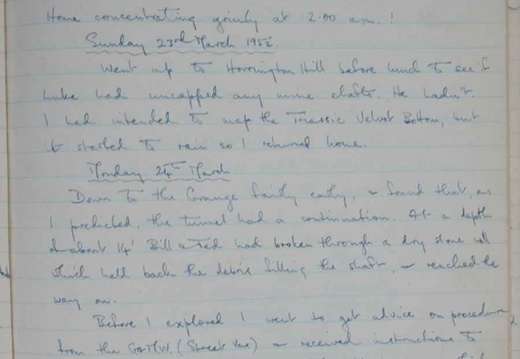 Home concentrating grimly at 2.00 a.m.!
Sunday 23rd March 1952
Went up to Horrington Hill before lunch to see if
Luke had uncapped any mine shafts. He hadn't.
I had intended to map the Triassic Velvet Bottom, but
it started to rain so I returned home.
Monday 24th March
Down to the Grange fairly early, & found that, as
I predicted, the tunnel had a continuation. At a depth
of about 14' Bill & Ted had broken through a dry stone wall
which held back the debris filling the shaft, & reached the
way on.
Before I explored I went to get advice on procedure
from the (Street Yue) & received instructions to